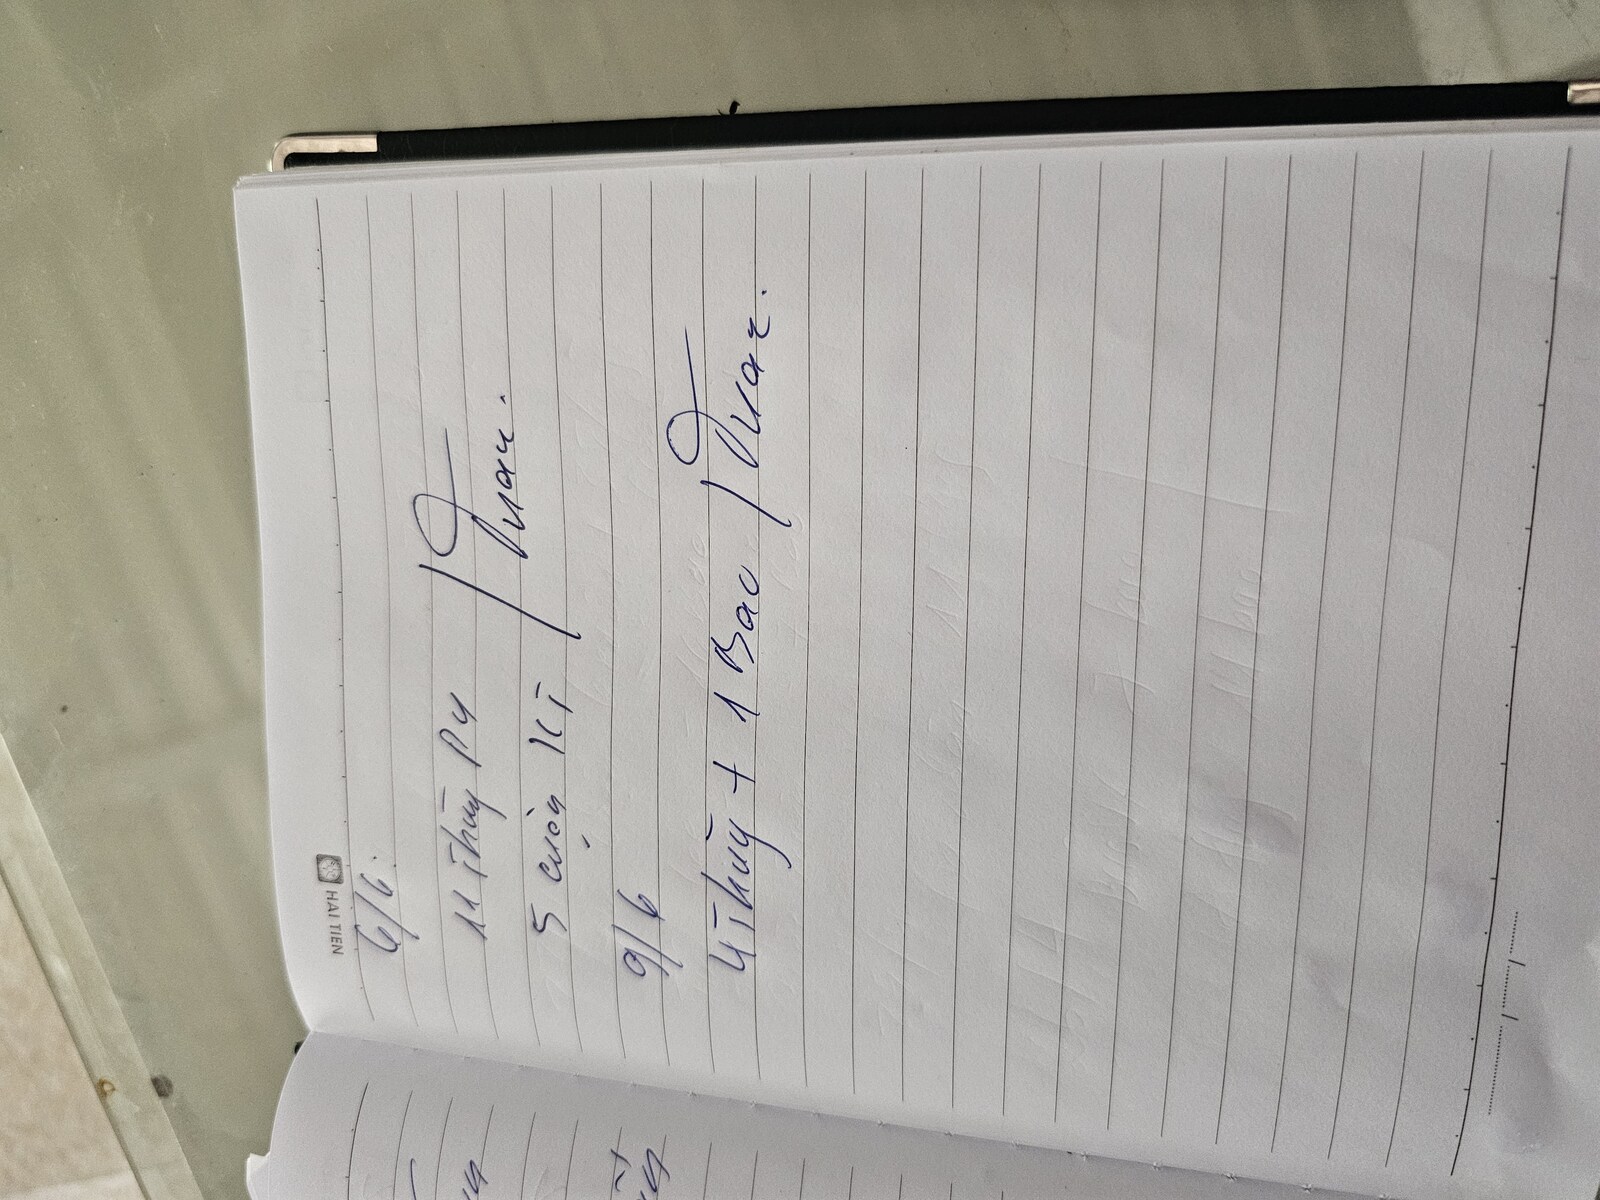 HAI TIEN
6/6.
11 thùng PY
5 cuộn KT
9/6
4 thùng + 1 Bao